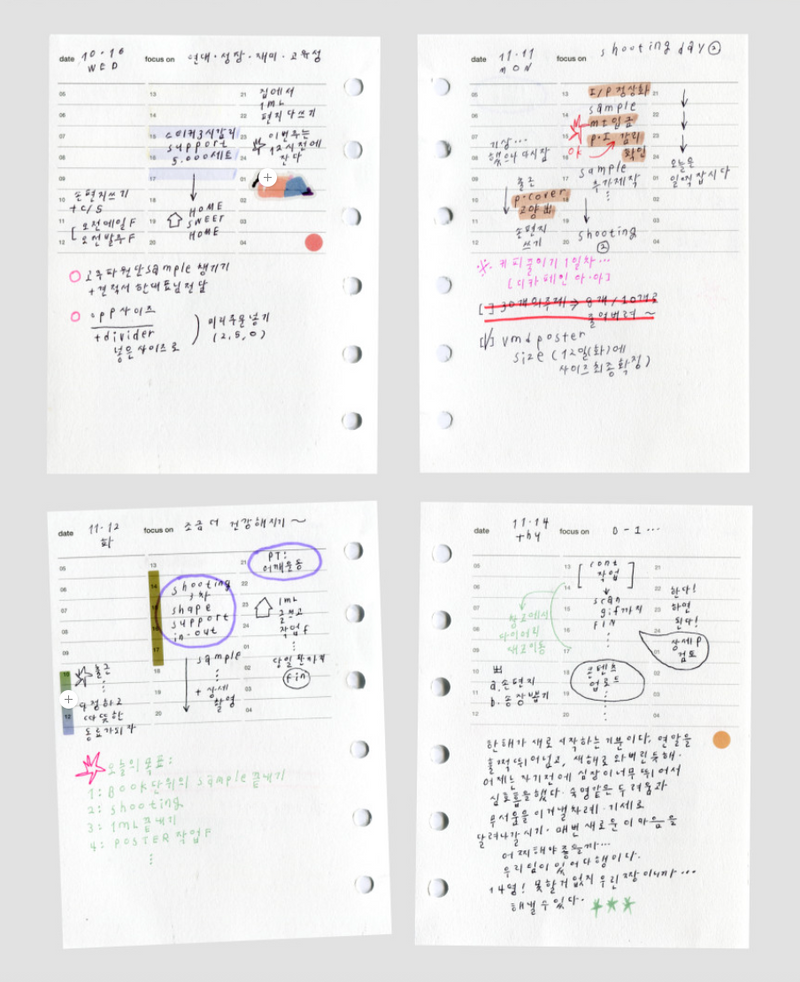 date 10.16 WED focus on 연대·성장·재미·고유성
05 13 21 집에서
06 14 22 1ML
편지 다쓰기
07 15 3시감리 23 이번주는
support 12시전에
08 16 5.000세트 24 잔다
09 17 01
10 손편지쓰기 18 HOME 02
+ C/S SWEET
11 오전메일F 19 HOME 03
12 오전발주F 20 04
sample 챙기기
+ 견적서 한대표님 전달
PP 사이즈
+divider
넣은 사이즈로
미리주문넣기
(2, 5, 0)
date 11.11 MON focus on shooting day ②
05 13 I/P 정상화 21
06 14 sample 22
07 15 입금 23
기상... P.I 감리
08 했으나 다시잠 16 OK 확인 24 오늘은
09 출근 17 sample 01 일찍잡시다
추가제작
10 p-cover 18 02
11 고양出 19 03
12 손편지 20 shooting 04
쓰기 ②
※ 커피줄이기 1일차...
[디카페인 아·아]
[ ] 30개의주제 → 8개 / 10개로
줄여버려 ~
[√] vmd poster
size (12일(화)에
사이즈최종확정)
date 11.12 화 focus on 조금 더 건강해지기 ~
05 13 21 PT:
어깨운동
06 14 shooting 22
07 15 shape 23 1ML
08 16 support 24 글쓰고
in-out 작업F
09 17 sample 01
10 출근 18 02
+ 상세 fin
11 다정하고 19 촬영 03
12 따뜻한 20 04
동료가되자
오늘의 목표:
1: BOOK단위의 sample 끝내기
2: shooting
3: 1ML 끝내기
4: POSTER 작업F
date 11.14 thu focus on D-1...
05 13 21
작업
06 14 scan 22 한다!
07 창고에서 15 gif까지 23 하면
다이어리 FIN 된다!
08 새로이동 16 24 상세P
09 17 01 검토
10 出 18 콘텐츠 02
11 a. 손편지 19 업로드 03
12 b. 송장뽑기 20 04
한해가 새로 시작하는 기분이다. 연말을
훌쩍 뛰어넘고, 새해로 와버린 듯해.
어제는 자기전에 심장이너무 뛰어서
심호흡을했다. 숙명같은 두려움과
무서움을 이겨낼차례. 기세로
달려나갈시기. 매번 새로운 이 마음을
어찌해야 좋을까...
우리팀이 있어 다행이다.
14명! 못할거 없지 우린 짱이니까...
해낼 수 있다.